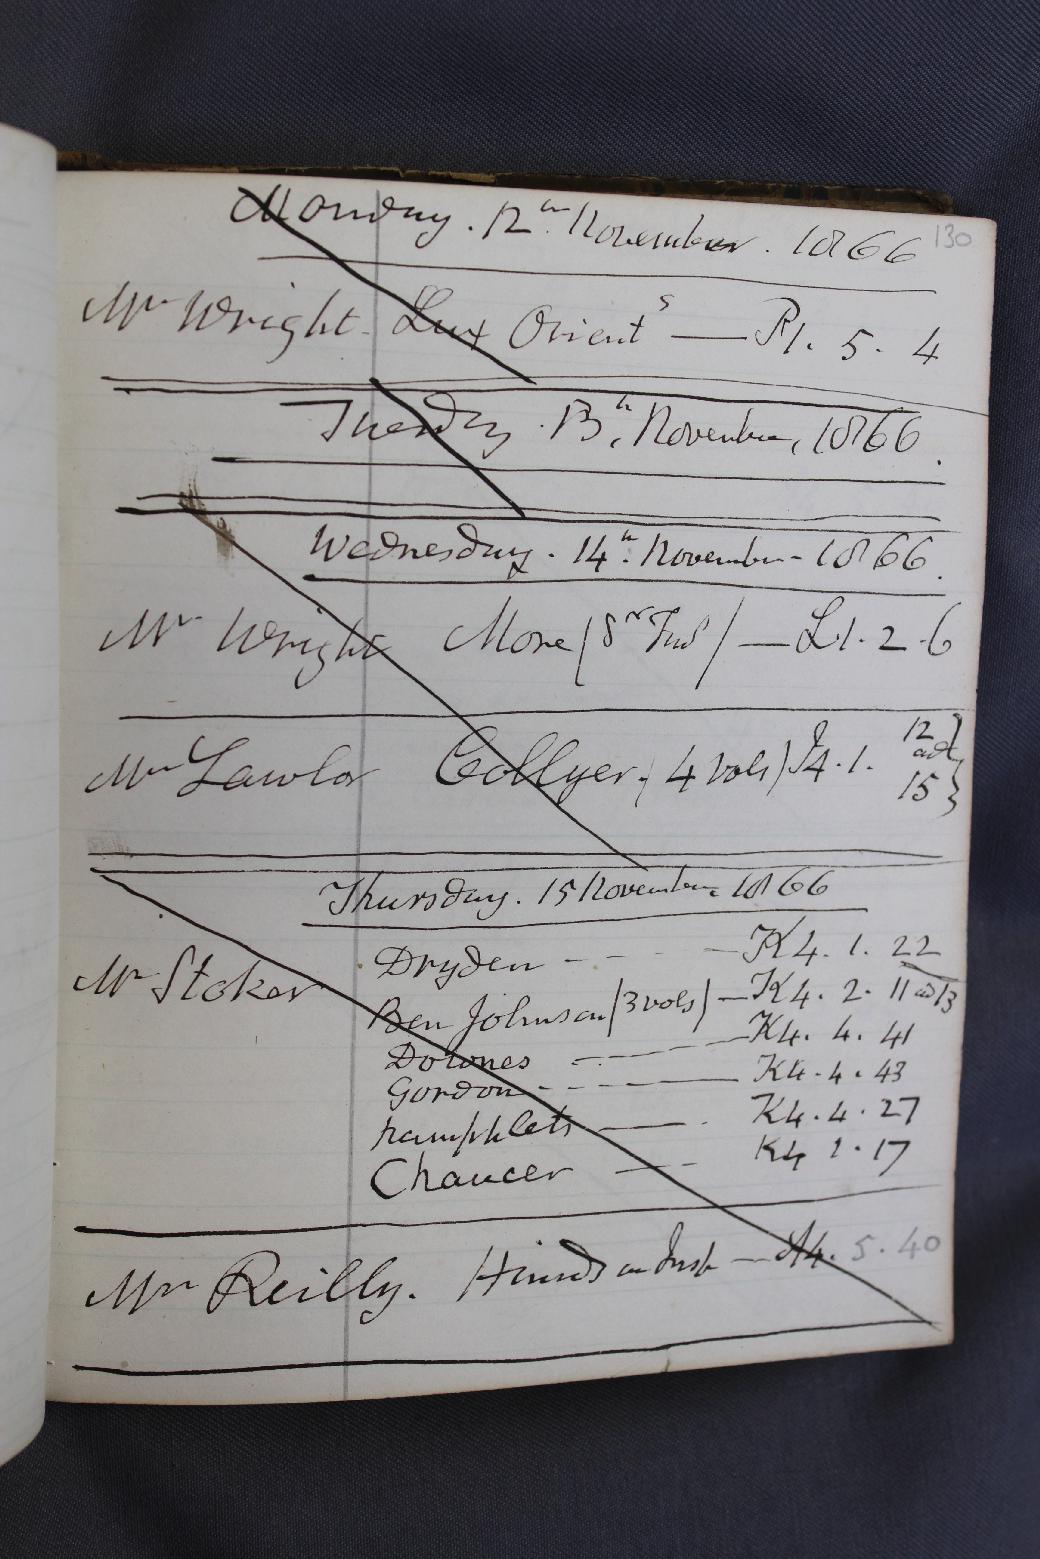 Monday. 12th November. 1866
130
Mr Wright - Lux Orients — P1. 5. 4
Tuesday. 13th November, 1866.
Wednesday. 14th November - 1866.
Mr Wright More ( ) — L1. 2. 6
Mr Lawlor Collyer (4 vols) I4. 1. 12 and 15
Thursday. 15 November 1866
Mr Stoker
Dryden - - - K4. 1. 22
Ben Johnson (3 vols) — K4. 2. 11 and 13
Downes — K4. 4. 41
Gordon - - — K4. 4. 43
Pamphlets — K4. 4. 27
Chaucer — K4 1. 17
Mr Reilly. Hinds on — A4. 5. 40